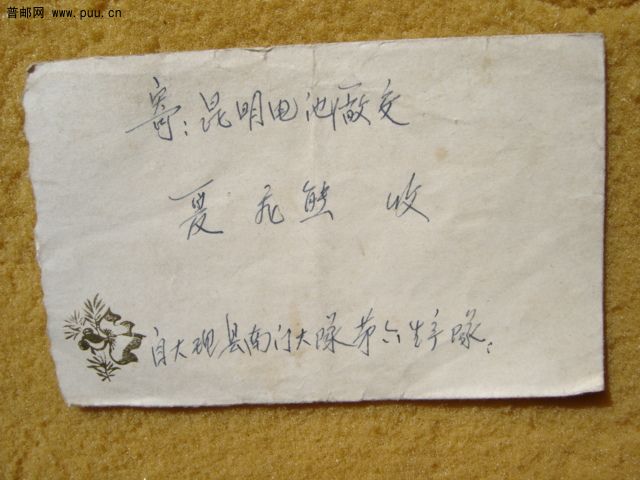 普邮网 www.puu.cn
寄：昆明电池厰交
夏 飛熊 收
自大理县南门大隊第六生产隊：